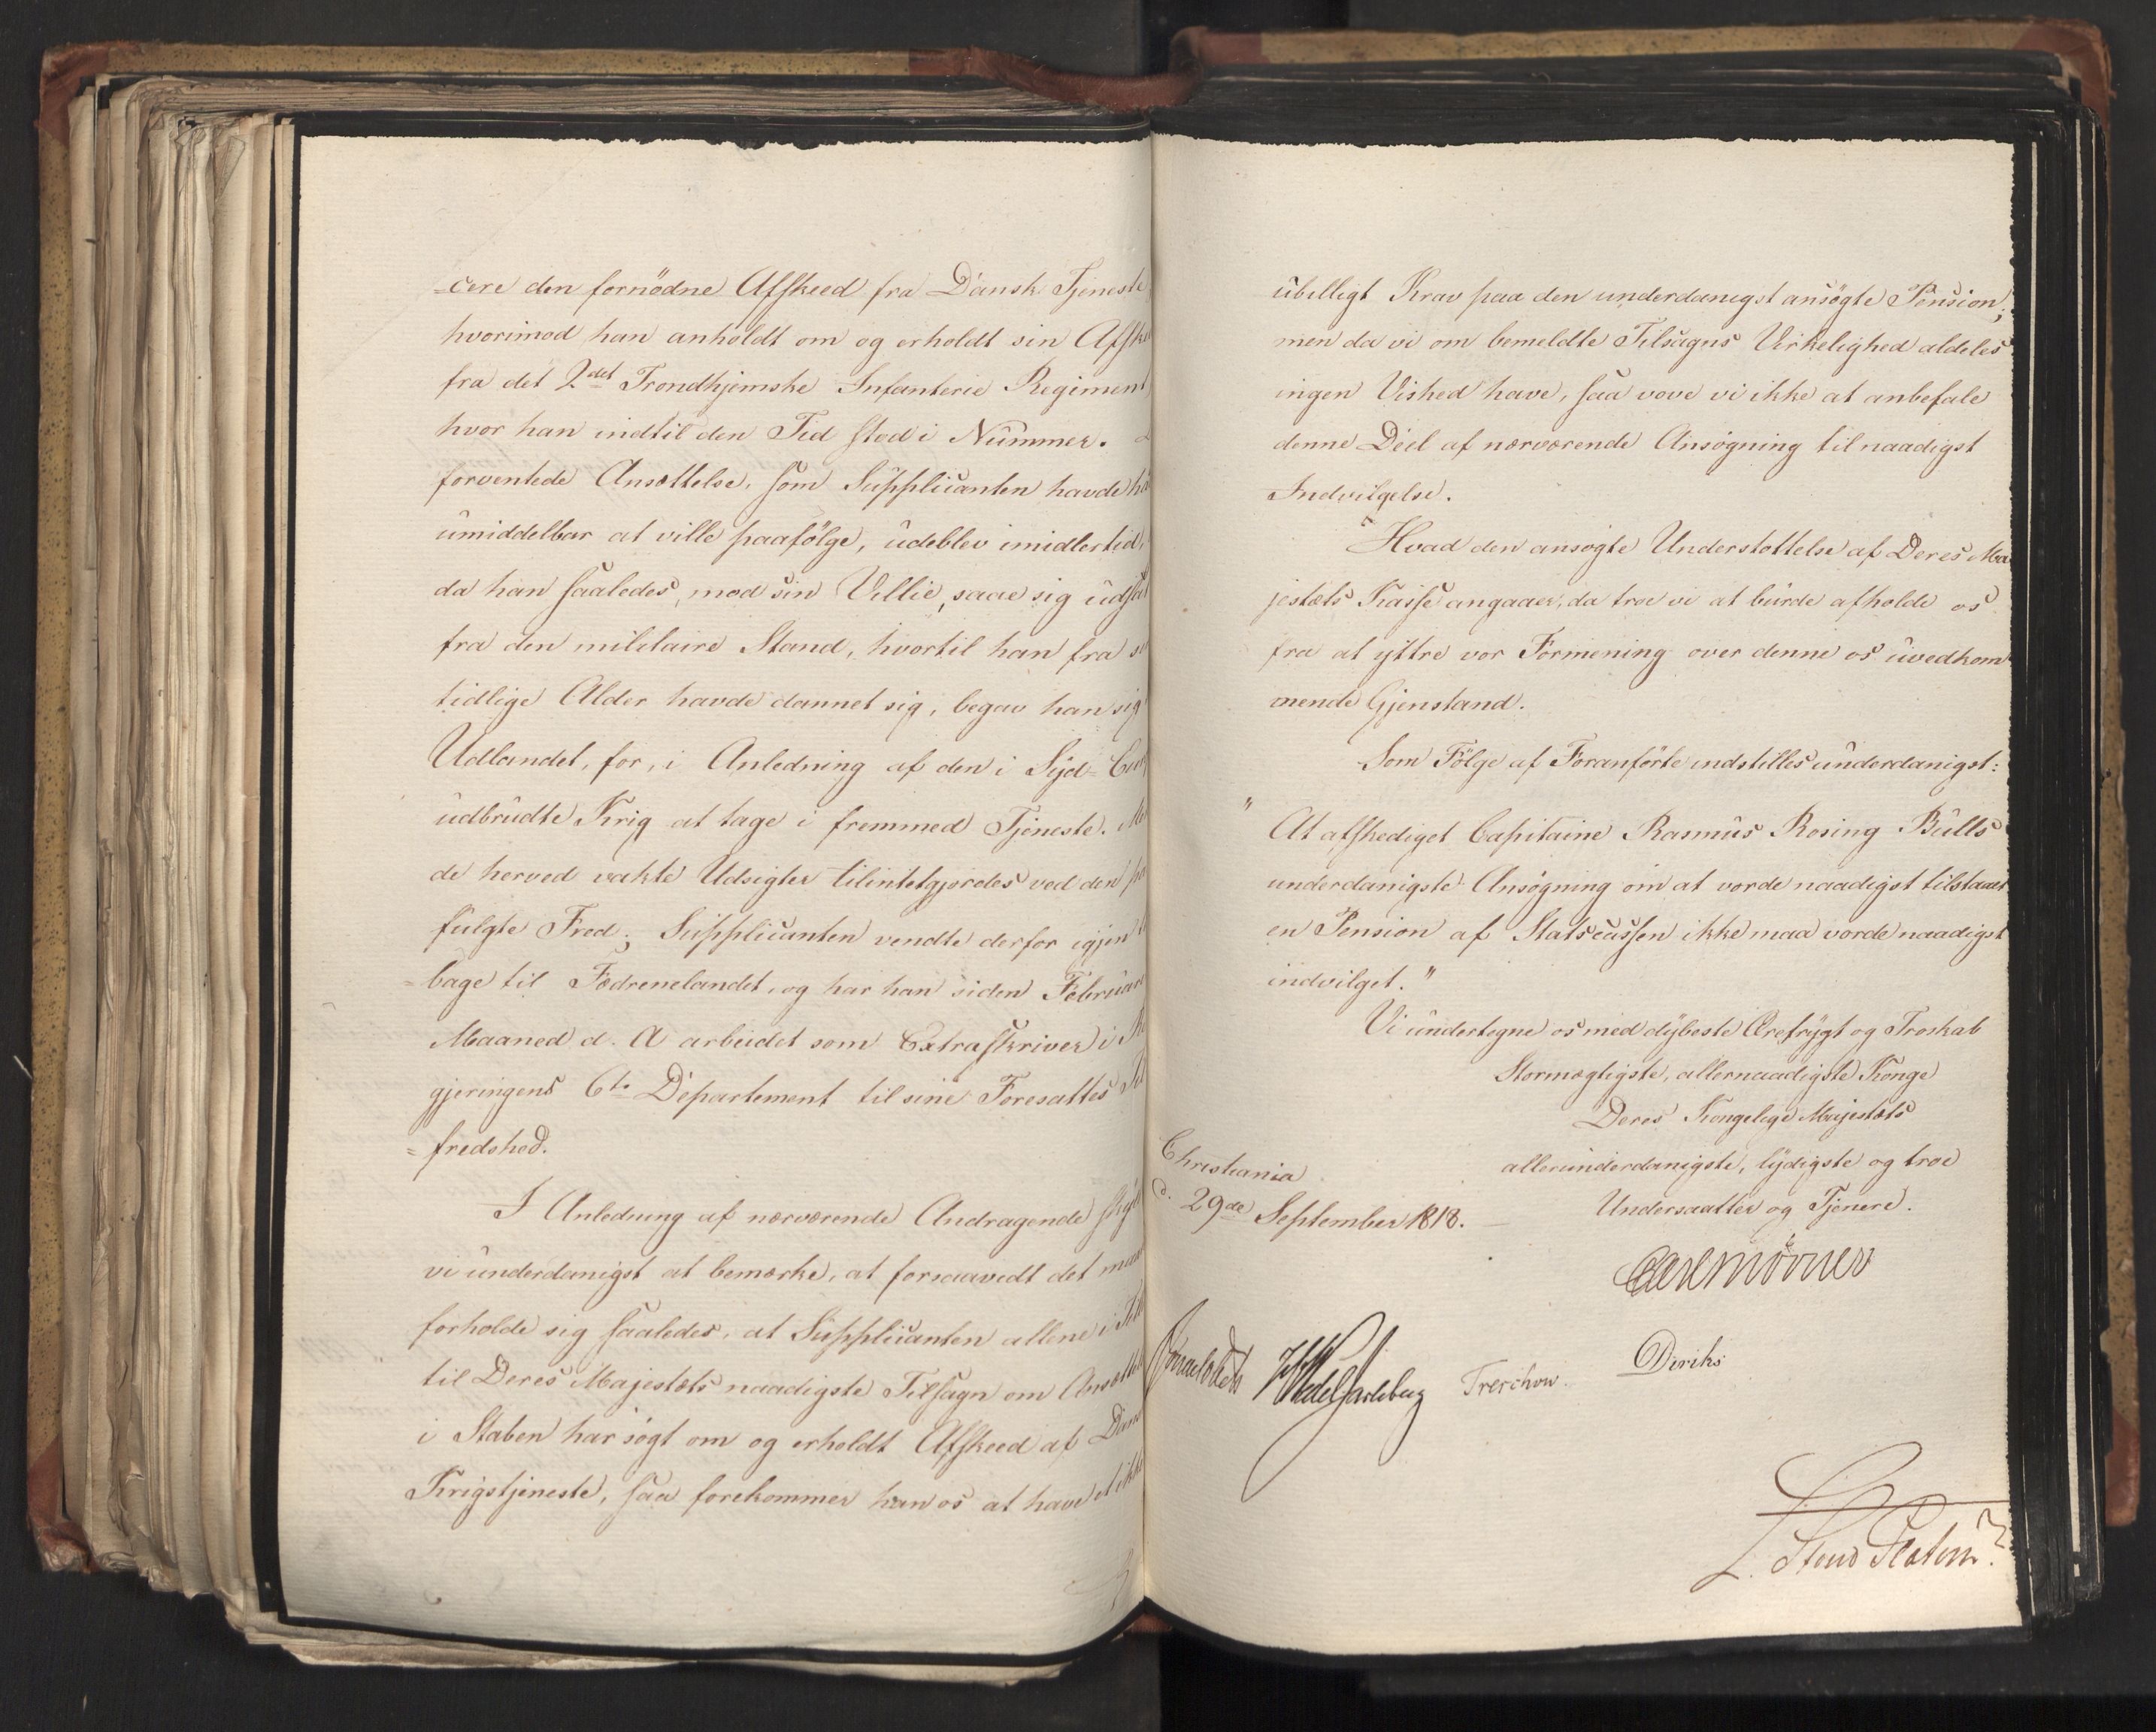 =cere den fornödne Afskeed fra Dansk Tjeneste
hvorimod han anholdt om og erholdt sin Afske
fra det 2det Trondhjemske Infanterie Regiment
hvor han indtil den Tid stod i Nummer.
forventede Ansættelse, som Supplicanten havde
umiddelbar at ville paafölge, udeblev imidlertid,
da han saaledes, mod sin Villie, saae sig udsat
fra den militaire Stand, hvortil han fra
tidlige Alder havde dannet sig, begav han sig
Udlandet, for, i Anledning af den i Syd=
udbrudte Krig at tage i fremmed Tjeneste.
de herved vakte Udsigter tilintetgjordes ved den
fulgte Fred; Supplicanten vendte derfor igjen
=bage til Fædrenelandet, og har han siden Februar
Maaned d. A arbeidet som Extraskriver i
gjeringens 6te Departement til sine Foresattes
=fredshed.
I Anledning af nærværende Andragende
vi underdanigst at bemærke, at forsaavidt det maa
forholde sig saaledes, at Supplicanten allene i
til Deres Majestæts naadigste Tilsagn om Ansættel
i Staben har sögt om og erholdt Afskeed af Dans
Krigstjeneste, saa forekommer han os at have et ikke
ubilligt Krav paa den underdanigst ansögte Pension;
men da vi om bemeldte Tilsagns Virkelighed aldeles
ingen Vished have, saa vove vi ikke at anbefale
denne Deel af nærværende Ansögning til naadigst
Indvilgelse.
Hvad den ansögte Understöttelse af Deres Ma
jestæts Kasse angaaer, da troe vi at burde afholde os
fra at yttre vor Formening over denne os uvedkom
mende Gjenstand.
Som Fölge af Foranförte indstilles underdanigst:
"At afskediget Capitaine Rasmus Rosing Bulls
underdanigste Ansögning om at vorde naadigst tilstaaet
en Pension af Statscassen ikke maa vorde naadigst
indvilget."
Vi undertegne os med dybeste Ærefrygt og Troskab
Stormægtigste, allernaadigste Konge
Deres Kongelige Majestæts
allerunderdanigste, lydigste og troe
Undersaatter og Tjenere.
Christiania
d. 29de September 1818.
Carl Mörner
HWedelJarlsberg Treschow. Diriks
L. Stoud Platou